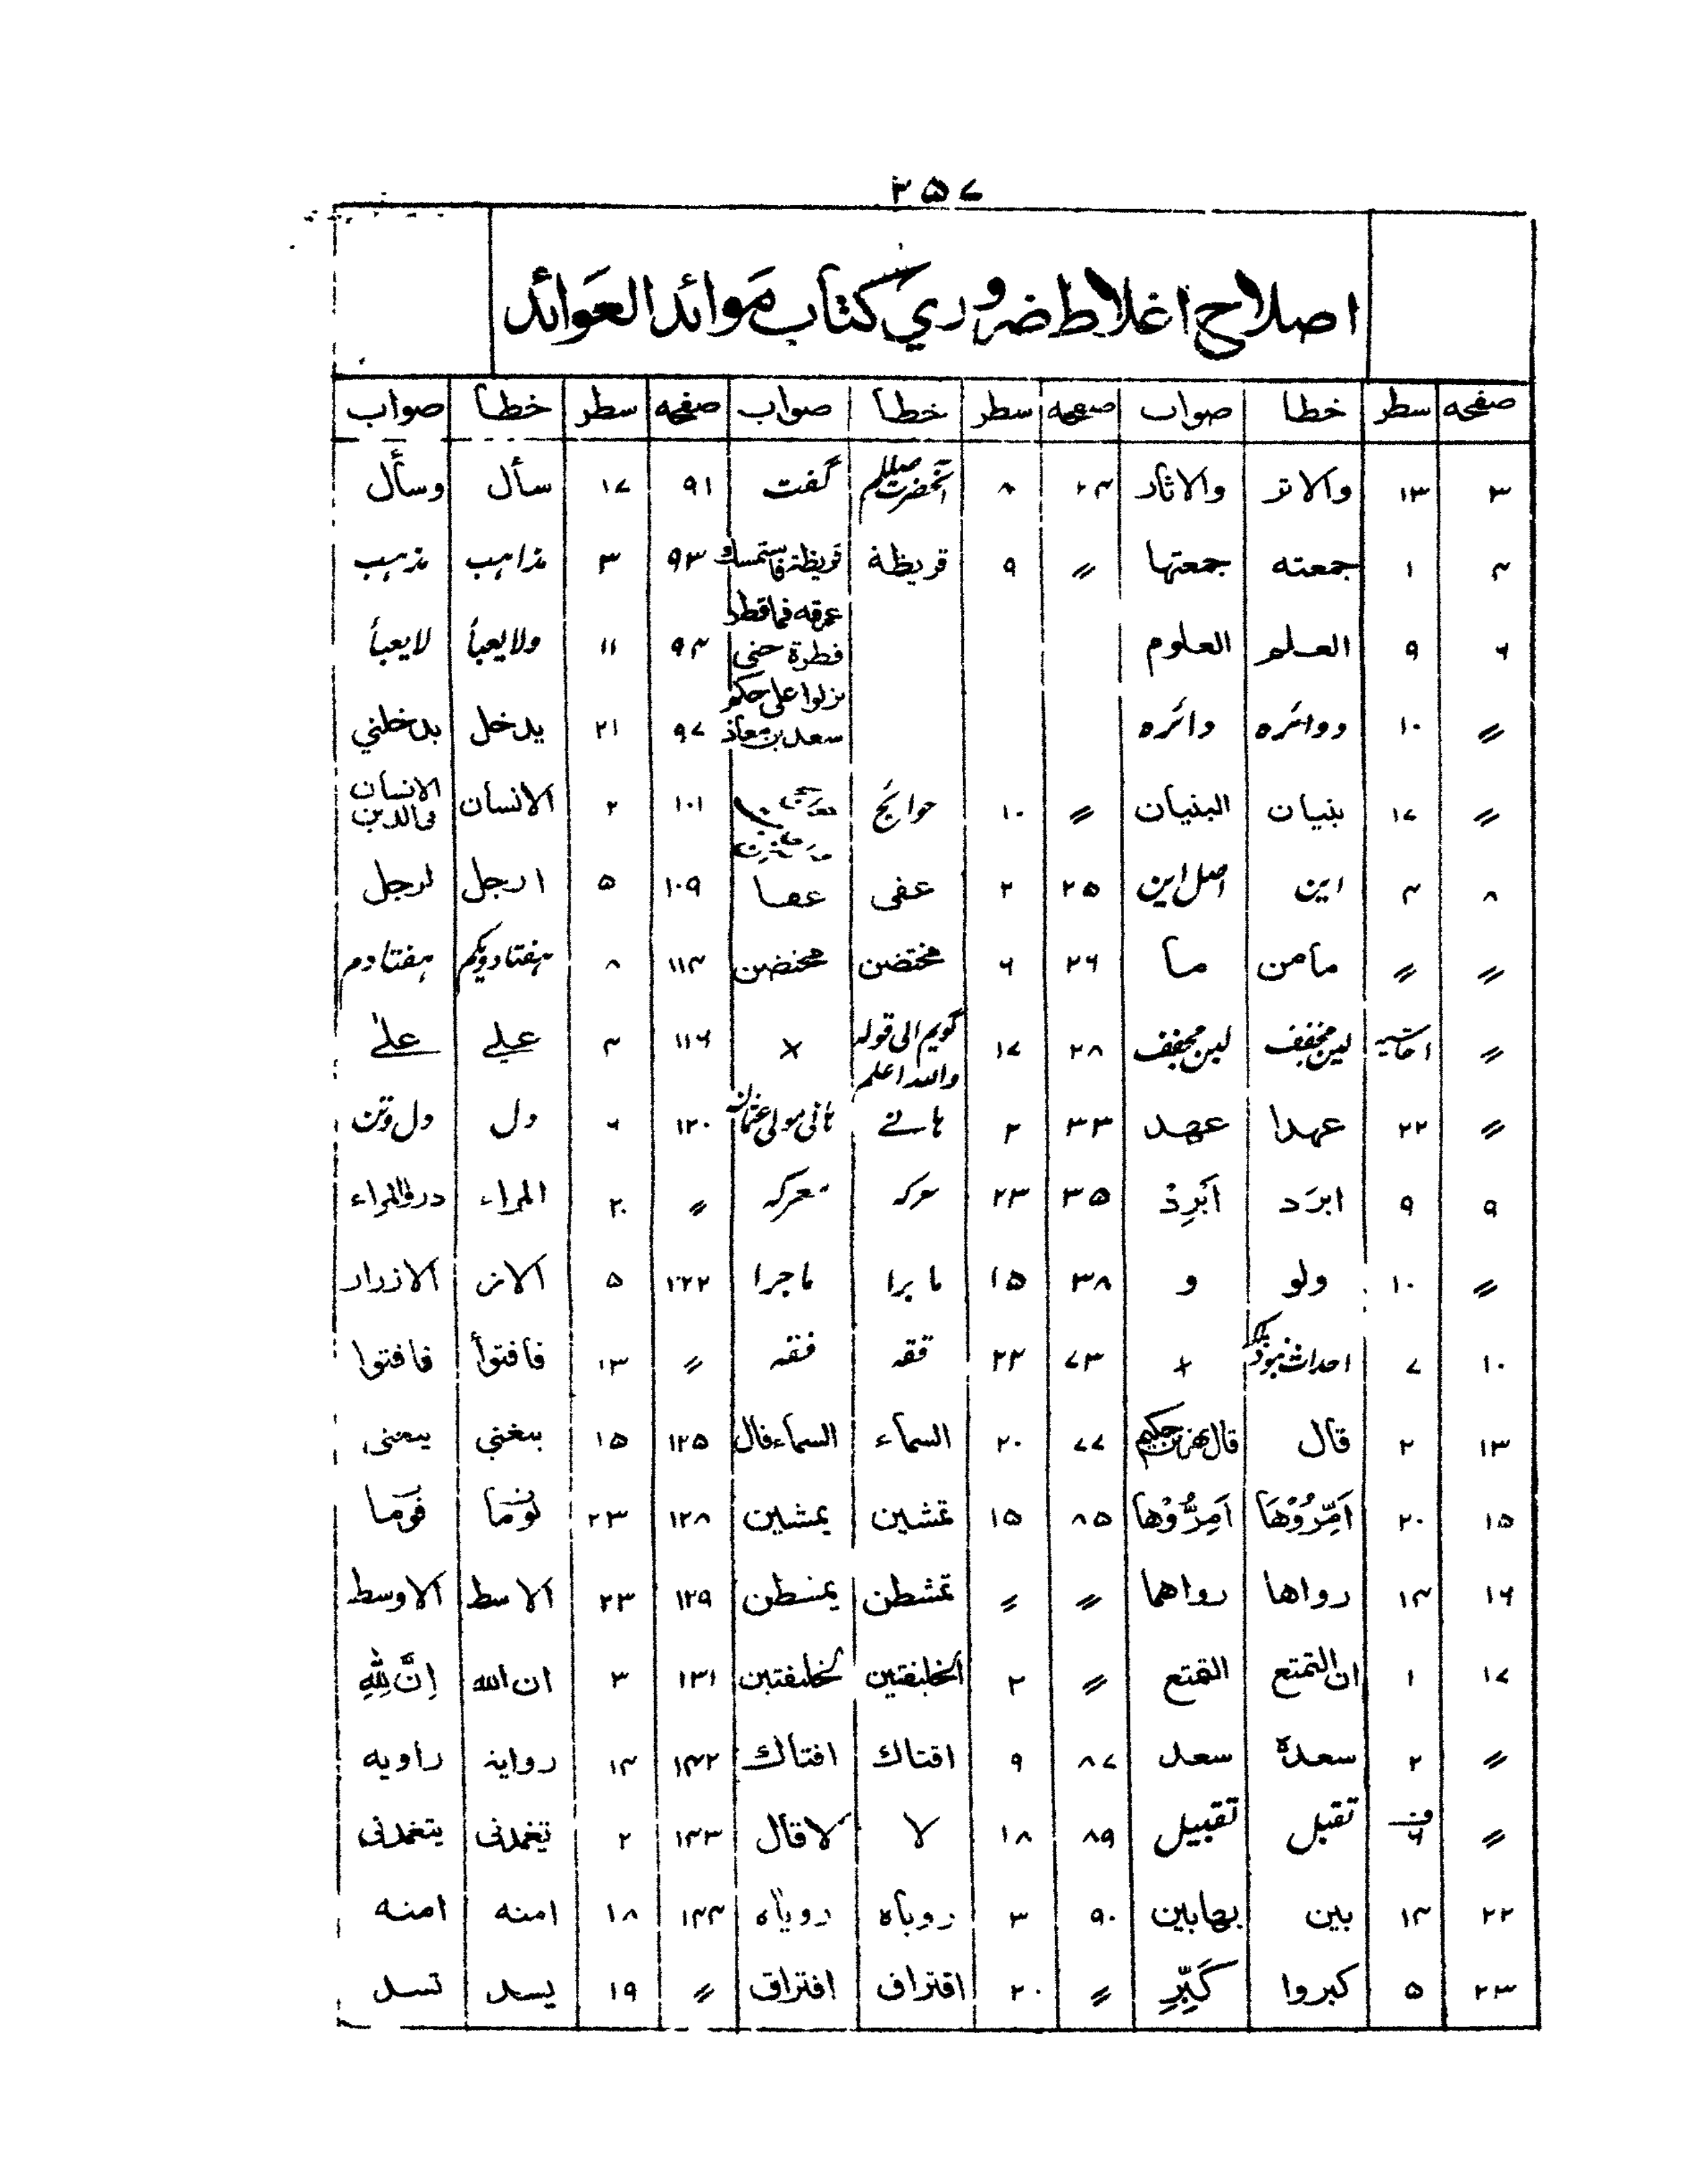 ۲۵۷
اصلاح اغلاط ضروري كتاب موائد العوائد
صفحه سطر خطا صواب صفحه سطر خطا صواب صفحه سطر خطا صواب
۳ ۱۳ والاثر والاثار ۲۴ ۸ آنحضرت صللم گفت ۹۱ ۱۷ سأل وسأل
۴ ۱ جمعته جمعتها 〃 ۹ قريظة قريظة فاستمسك ۹۳ ۳ مذاهب مذهب
عرقه فما قطر
۶ ۹ العلم العلوم قطرة حتى ۹۴ ۱۱ ولايعبأ لايعبأ
نزلوا على حكم
〃 ۱۰ ودائره دائره سعد بن معاذ ۹۷ ۲۱ يدخل يدخلني
〃 ۱۷ بنيان البنيان 〃 ۱۰ حوائج ۱۰۱ ۲ الانسان الانسان فى الدين
۸ ۴ اين اصل اين ۲۵ ۲ عفى عصا ۱۰۹ ۵ ارجل لرجل
〃 〃 مامن ما ۲۶ ۶ مختضن محتضن ۱۱۴ ۸ هفتاد ويكم هفتاد دم
〃 حاشيه لين مخفف لبن مجفف ۲۸ ۱۷ گويم الى قوله والله اعلم × ۱۱۶ ۴ علي علىٰ
〃 ۲۲ عهدا عهد ۳۳ ۲ هانے هانى مولى عثمان ۱۲۰ ۶ دل دل وتن
۹ ۹ ابرَد اَبْرِدْ ۳۵ ۲۳ عركه معركه 〃 ۲۰ المراء درؤالمراء
〃 ۱۰ ولو و ۳۸ ۱۵ مابرا ماجرا ۱۲۲ ۵ الازر الازرار
۱۰ ۷ احداث × ۷۳ ۲۲ تقه فقه 〃 ۱۳ فافتوأ فافتوا
۱۳ ۲ قال قال بهز بن حكيم ۷۷ ۲۰ السماء السماء قال ۱۲۵ ۱۵ يبغني يبعنى
۱۵ ۲۰ اَمِّرُوْهَا اَمِرُّوْها ۸۵ ۱۵ تمشين يمشين ۱۲۸ ۲۳ نوما فوما
۱۶ ۱۴ رواها رواهما 〃 〃 تمشطن يمشطن ۱۲۹ ۲۳ الاسط الاوسط
۱۷ ۱ ان التمتع التمتع 〃 ۲ الخليفتين كخليفتين ۱۳۱ ۳ ان الله اِنَّ لِلّٰهِ
〃 ۲ سعدة سعد ۸۷ ۹ اقتاك افتاك ۱۴۲ ۱۴ رواية راويه
〃 ۶ تقبل تقبيل ۸۹ ۱۸ لا لا قال ۱۴۳ ۲ تغمدنى يتغمدنى
۲۲ ۱۴ بين بهابين ۹۰ ۳ روباه روياه ۱۴۴ ۱۸ امنه امنه
۲۳ ۵ كبروا كَبِّرِ 〃 ۲۰ اقتراف افتراق 〃 ۱۹ يسد تسد